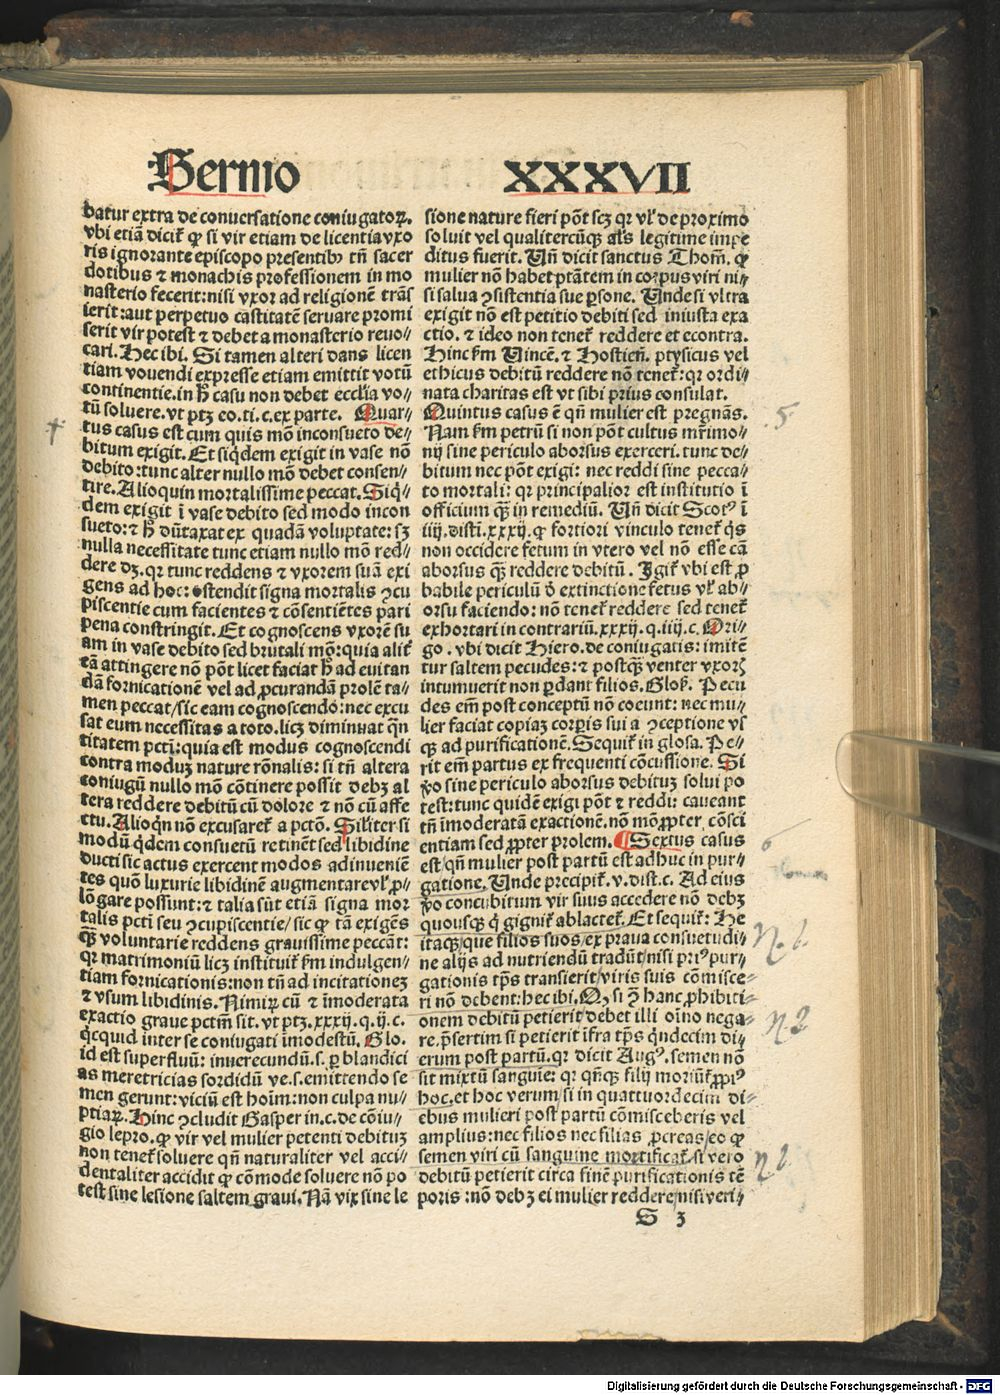 Sermo XXXVII
batur extra de conuersatione coniugatoꝝ.
vbi etiā dicit͛ ꝙ si vir etiam de licentia vxo
ris ignorante episcopo presentibꝰ tñ sacer
dotibus ⁊ monachis professionem in mo
nasterio fecerit: nisi vxor ad religionē trās
ierit: aut perpetuo castitatē seruare promi
serit vir potest ⁊ debet a monasterio reuo⸗
cari. Hec ibi. Si tamen alteri dans licen
tiam vouendi expresse etiam emittit votū
continentie. in hͦ casu non debet ecclia vo⸗
tū soluere. vt ptꝫ eo. ti. c. ex parte. Quar⸗
tus casus est cum quis mō inconsueto de⸗
bitum exigit. Et siqͥdem exigit in vase nō
debito: tunc alter nullo mō debet consen⸗
tire. Alioquin mortalissime peccat. Siqͥ⸗
dem exigit ī vase debito sed modo incon
sueto: ⁊ hͦ dūtaxat ex quadā voluptate: sꝫ
nulla necessitate tunc etiam nullo mō red⸗
dere dꝫ. qꝛ tunc reddens ⁊ vxorem suā exi
gens ad hoc: ostendit signa mortalis ꝯcu
piscentie cum facientes ⁊ cōsentiētes pari
pena constringit. Et cognoscens vxorē su
am in vase debito sed brutali mō: quia alit͛
eā attingere nō pōt licet faciat hͦ ad euitan
dā fornicationē vel ad ꝓcurandā prolē ta⸗
men peccat/sic eam cognoscendo: nec excu
sat eum necessitas a toto. licꝫ diminuat qͣn
titatem pcti: quia est modus cognoscendi
contra moduꝫ nature rōnalis: si tñ altera
coniugū nullo mō cōtinere possit debꝫ al
tera reddere debitū cū dolore ⁊ nō cū affe
ctu. Alioqͥn nō excusaret͛ a pctō. Siliter si
modū qͥdem consuetū retinēt sed libidine
ducti sic actus exercent modos adinueniē
tes quō luxurie libidinē augmentare vl̓ ꝓ⸗
lōgare possunt: ⁊ talia sūt etiā signa mor
talis pcti seu ꝯcupiscentie/sic ꝙ tā exigēs
qͣꝫ voluntarie reddens grauissime peccāt:
qꝛ matrimoniū licꝫ instituit͛ ẜm indulgen⸗
tiam fornicationis: non tñ ad incitationeꝫ
⁊ vsum libidinis. Nimiꝝ cū ⁊ īmoderata
exactio graue pctm̄ sit. vt ptꝫ. xxxij. q. ij. c.
qͥcquid inter se coniugati īmodestū. Glo.
id est superfluū: inuerecundū. s. ꝑ blandici
as meretricias sordidū ve. s. emittendo se
men gerunt: viciū est hoīm: non culpa nu⸗
ptiaꝝ. Hinc ꝯcludit Gasper in. c. de cōiu⸗
gio lepro. ꝙ vir vel mulier petenti debituꝫ
non tenet͛ soluere qñ naturaliter vel acci⸗
dentaliter accidit ꝙ cōmode soluere nō po
test sine lesione saltem graui. Nā vix sine le
sione nature fieri pōt scꝫ qꝛ vl̓ de proximo
soluit vel qualitercūqꝫ als legitime impe
ditus fuerit. Uñ dicit sanctus Thom̄. ꝙ
mulier nō habet ptātem in corpus viri ni⸗
si salua ꝯsistentia sue ꝑsone. Unde si vltra
exigit nō est petitio debiti sed iniusta exa
ctio. ⁊ ideo non tenet͛ reddere et econtra.
Hinc ẜm Uincē. ⁊ Hostieñ. ptysicus vel
ethicus debitū reddere nō tenet͛: qꝛ ordi⸗
nata charitas est vt sibi prius consulat.
Quintus casus ē qñ mulier est pregnās.
Nam ẜm petrū si non pōt cultus mr̄imo⸗
nij sine periculo aborsus exerceri. tunc de⸗
bitum nec pōt exigi: nec reddi sine pecca⸗
to mortali: qꝛ principalior est institutio ī
officium qͣꝫ in remediū. Uñ dicit Scotꝰ ī
iiij. disti. xxxij. ꝙ fortiori vinculo tenet͛ qͥs
non occidere fetum in vtero vel nō esse cā
aborsus qͣꝫ reddere debitū. Igit͛ vbi est ꝓ
babile periculū ď extinctione fetus vl̓ ab⸗
orsu faciendo: nō tenet͛ reddere sed tenet͛
exhortari in contrariū. xxxij. q. iiij. c. Ori⸗
go. vbi dicit Hiero. de coniugatis: imitē
tur saltem pecudes: ⁊ postqͣꝫ venter vxorꝫ
intumuerit non ꝑdant filios. Glos̓. Pecu
des em̄ post conceptū nō coeunt: nec mu⸗
lier faciat copiaꝫ corꝑis sui a ꝯceptione vs̓
qꝫ ad purificationē. Sequit͛ in glosa. Pe⸗
rit em̄ partus ex frequenti cōcussione. Si
ꝟo sine periculo aborsus debituꝫ solui po
test: tunc quidē exigi pōt ⁊ reddi: caueant
tñ īmoderatā exactionē. nō mō ꝓpter cōsci
entiam sed ꝓpter prolem. ¶ Sextus casus
est/qñ mulier post partū est adhuc in pur⸗
gatione. Unde precipit͛. v. dist. c. Ad eius
ꝟo concubitum vir suus accedere nō debꝫ
quousqꝫ qͥ gignit͛ ablactet͛. Et sequit͛: He
itaqꝫ/que filios suos/ex praua consuetudi⸗
ne alijs ad nutriendū tradūt/nisi priꝰ pur⸗
gationis tp̄s transierit/viris suis cōmisce⸗
ri nō debent: hec ibi. Qꝫ si ꝯ̄ hanc ꝓhibiti⸗
onem debitū petierit/debet illi oīno nega⸗
re. p̄sertim si petierit īfra tp̄s qͥndecim di⸗
erum post partū. qꝛ dicit Augꝰ. semen nō
sit mixtū sanguie: qꝛ qͥnqꝫ filij moriūt͛ ꝓpꝰ
hoc. et hoc verum si in quattuordecim di⸗
ebus mulieri post partū cōmisceberis vel
amplius: nec filios nec filias ꝓcreas/eo ꝙ
semen viri cū sanguine mortificat͛. si vero
debitū petierit circa finē purificationis tē
poris: nō debꝫ ei mulier reddere/nisi veri⸗
S 3
†
.5.
6
N. b.
N. 2.
N. 2.
Digitalisierung gefördert durch die Deutsche Forschungsgemeinschaft - DFG